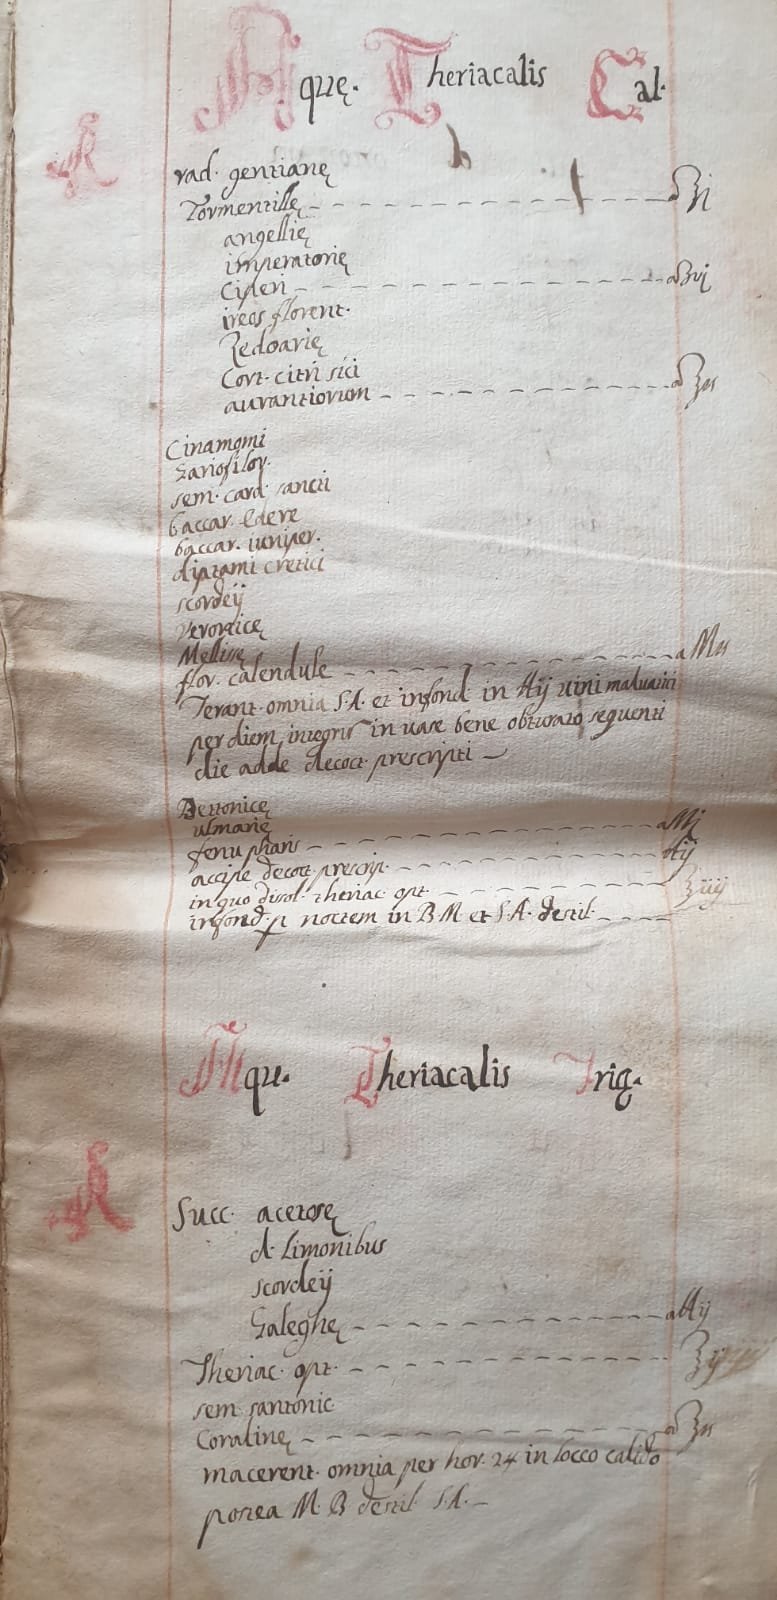 Aquę. Theriacalis Cal.
R
rad. gentianę
Tormentillę a ℥j
angelię
imperatorię
Ciperi a ℥vj
ireos florent.
Zedoarię
Cort. citri sici
aurantiorum a ℥ss
Cinamomi
Gariofilor.
sem. card. sancti
baccar. edere
baccar. iuniper.
diptami cretici
scordeij
veronicę
Mellisę
flor. calendule a Mss
Terant. omnia S.A. et infond. in ℔ij vini maluatici
per diem integrũ in vase bene obturato sequenti
die adde decoct. prescripti
Bettonicę
ulmarię
fenu pharis a Mj
accipe decoct. prescrip. ℔ij
in quo disol. theriac. opt. ℥iiij
infond. p noctem in B.M. et S.A. destil.
Aqu. Theriacalis Frig.
R
Succ. acetosę
d. Limonibus
scordeij
Galeghę a ℔ij
Theriac. opt. ℥ij
sem. santonic
Coralinę a ℥ss
macerent. omnia per hor. 24 in locco calido
postea M.B. destil. S.A.